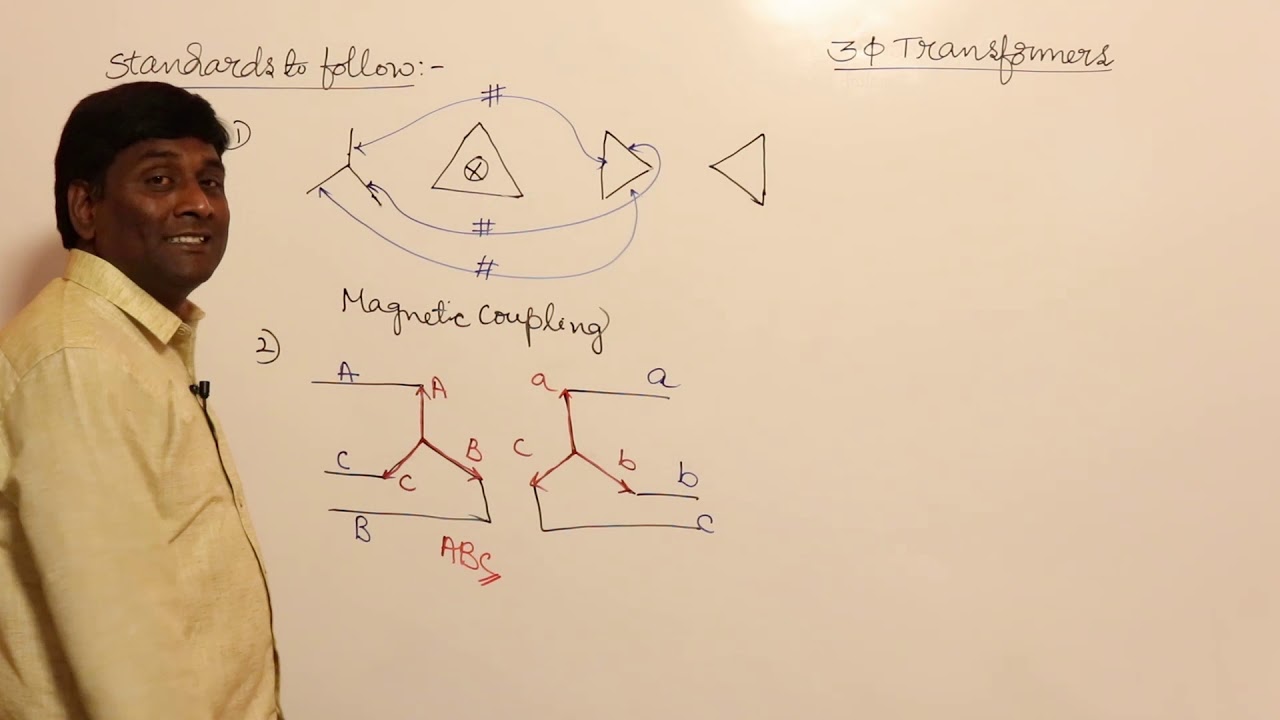 Standards to follow:-
3φ Transformers
1)
#
#
#
Magnetic Coupling
2)
A A a a
C C B C b b
B ABC C